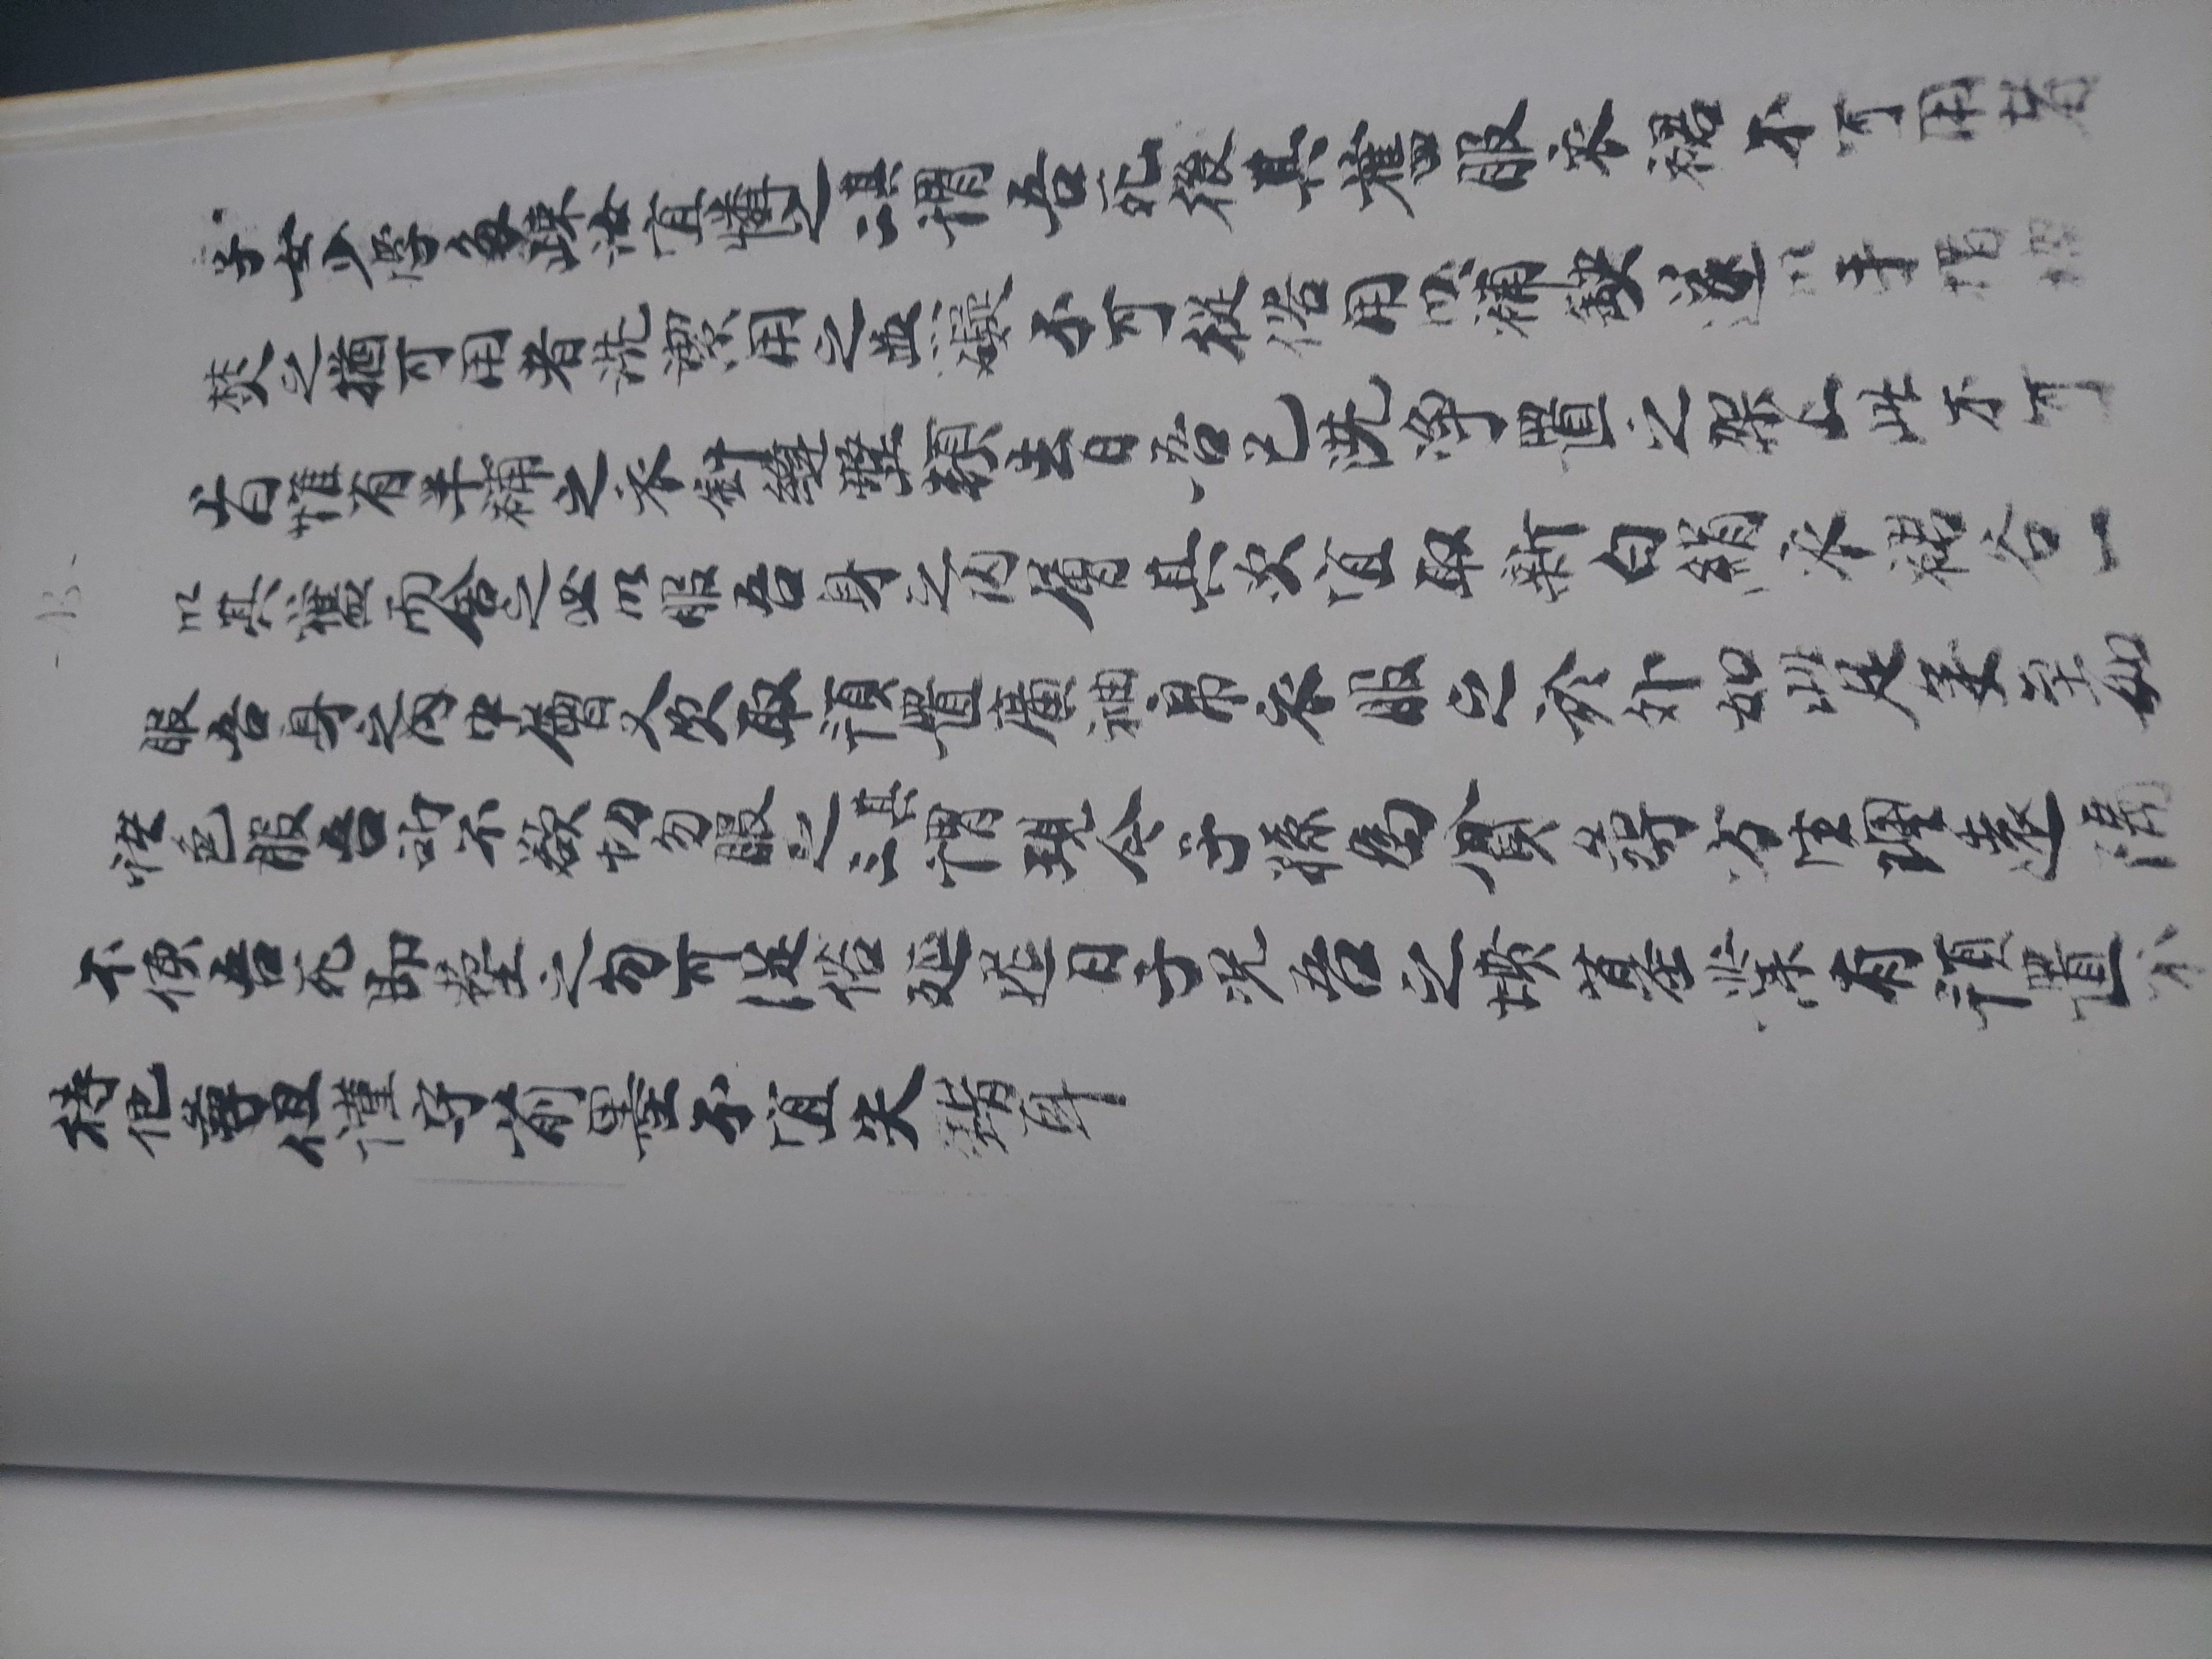 -13-
子女少學多疎汝宜憐之二其謂吾死後其舊服衣裙不可用者
焚之猶可用者洗潔用之並無礙不可從俗用以補缺遂以手
上白惟有半補之衣針縫整頓去日吾已洗净置之架上此不可
以其舊而舍之必以服吾身之内層其次宜取新白絹衣裙各一
服吾身之内中層又次取預置廣袖帛衣服之於外如此足矣至如
色服吾所不欲切勿服之三其謂現今子孫為貧尋方生理遠隔
不便吾死即塟之勿可從俗延遲日子况吾之墳墓業有預置不
待他尋但謹守前墨不宜失錯耳